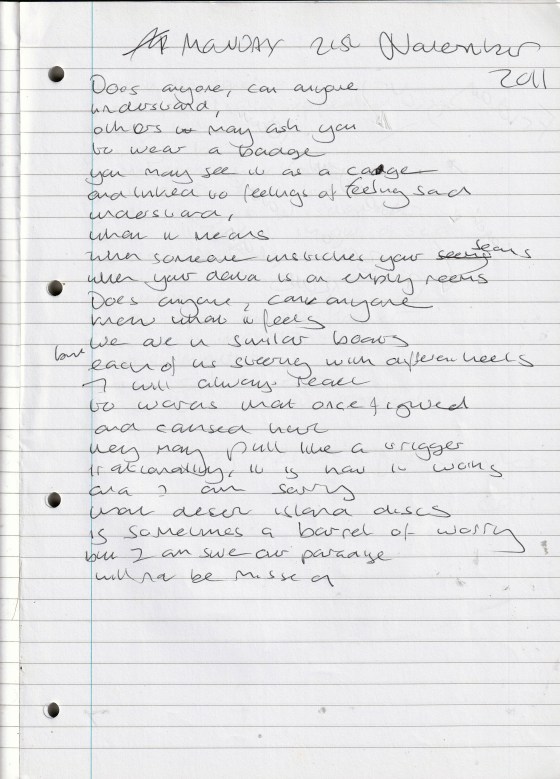 MONDAY 21st November
2011
Does anyone, can anyone
understand,
others may ask you
to wear a badge
you may see it as a cage
and linked to feelings of feeling sad
understand,
when it means
when someone unstitches your seams
when your data is on empty reems
Does anyone, can anyone
know what it feels
We are in similar boats
but each of us steering with different heels
I will always react
to words that once flowed
and caused hurt
they may pull like a trigger
irrationality, it is how it works
and I am sorry
that desert island discs
is sometimes a barrel of worry
but I am sure our paradise
will not be missed